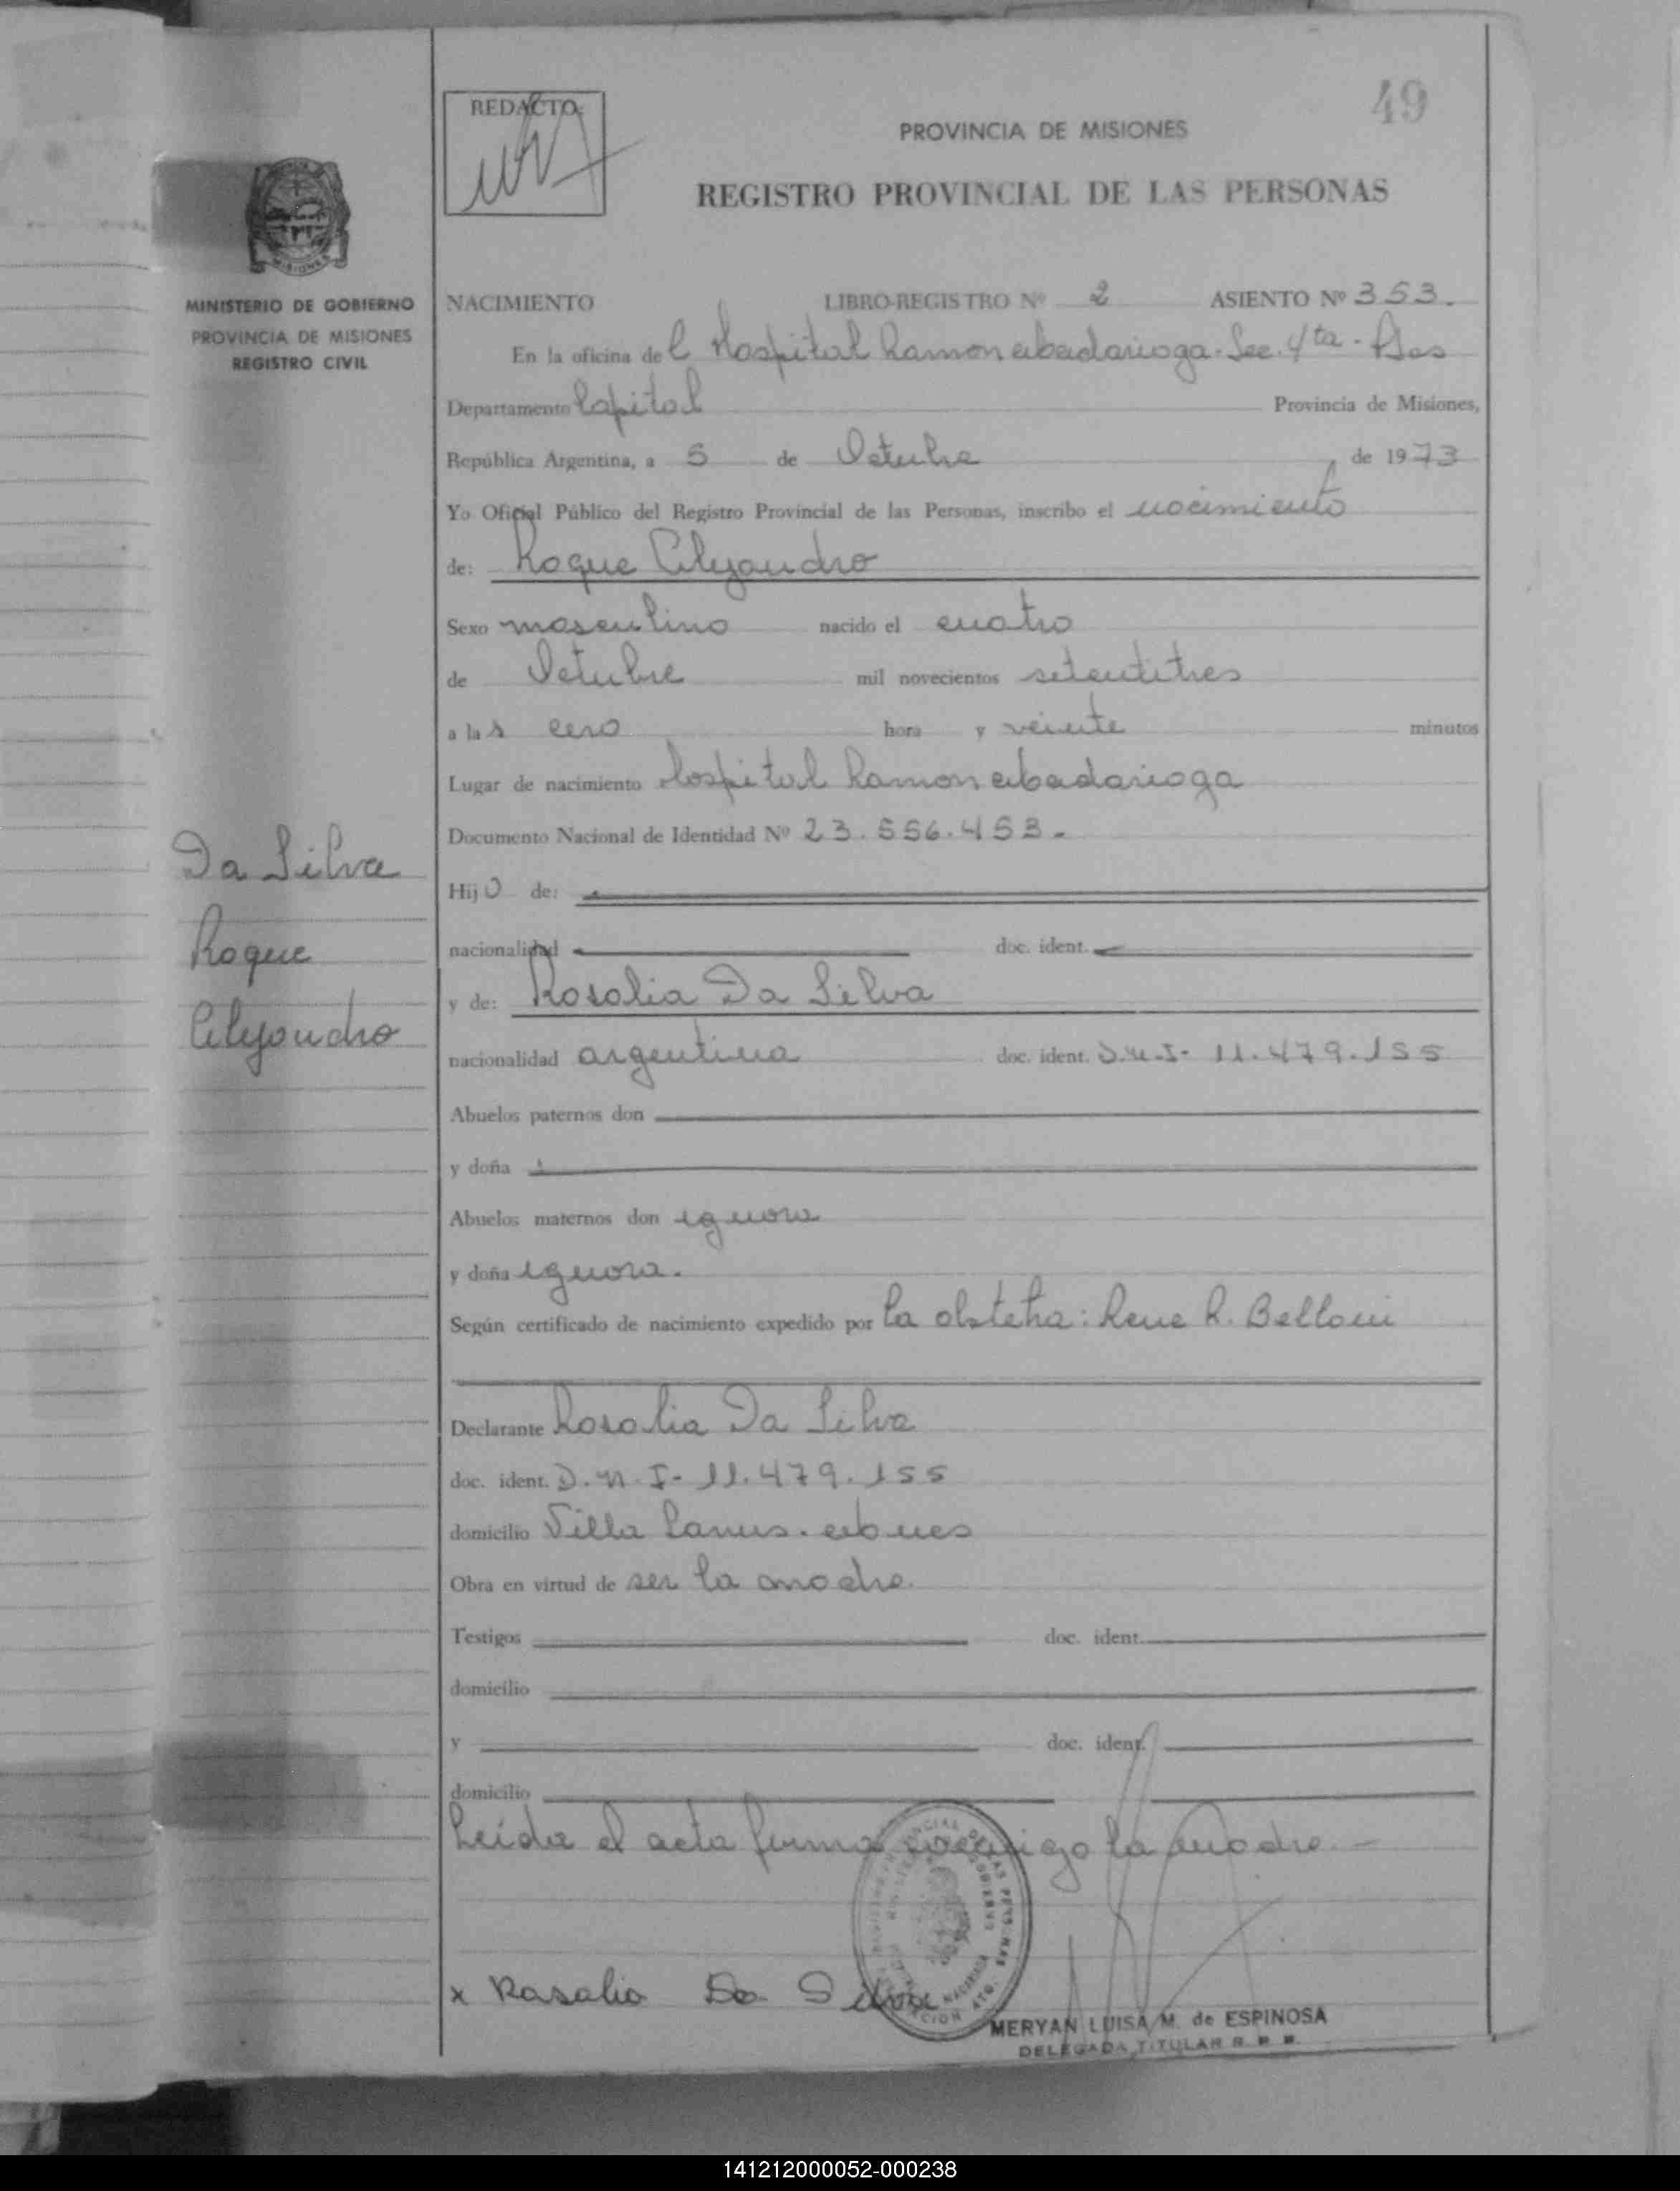 49
REDACTO:
PROVINCIA DE MISIONES
REGISTRO PROVINCIAL DE LAS PERSONAS
MISIONES
MINISTERIO DE GOBIERNO
PROVINCIA DE MISIONES
REGISTRO CIVIL
NACIMIENTO LIBRO-REGISTRO Nº 2 ASIENTO Nº 353.
En la oficina del Hospital Ramon abadarioga. Sec. 4ta - Pdas
Departamento Capital Provincia de Misiones,
República Argentina, a 5 de Octubre de 1973
Yo Oficial Público del Registro Provincial de las Personas, inscribo el nacimiento
de: Roque Alejandro
Sexo masculino nacido el cuatro
de Octubre mil novecientos setentitres
a las cero hora y veinte minutos
Lugar de nacimiento Hospital Ramon abadarioga
Documento Nacional de Identidad Nº 23.556.453.-
Da Silva
Roque
Alejandro
Hijo de:
nacionalidad doc. ident.
y de: Rosalia Da Silva
nacionalidad argentina doc. ident. D.N.I- 11.479.155
Abuelos paternos don
y doña
Abuelos maternos don ignora
y doña ignora.
Según certificado de nacimiento expedido por la obstetra: Rene R. Belloni
Declarante Rosalia Da Silva
doc. ident. D.N.I- 11.479.155
domicilio Villa Lanus.
Obra en virtud de ser la madre.
Testigos doc. ident.
domicilio
y doc. ident.
domicilio
Leída el acta firma conmigo la madre.-
x Rosalia Da Silva
MERYAN LUISA M. de ESPINOSA
DELEGADA TITULAR R. P. P.
141212000052-000238